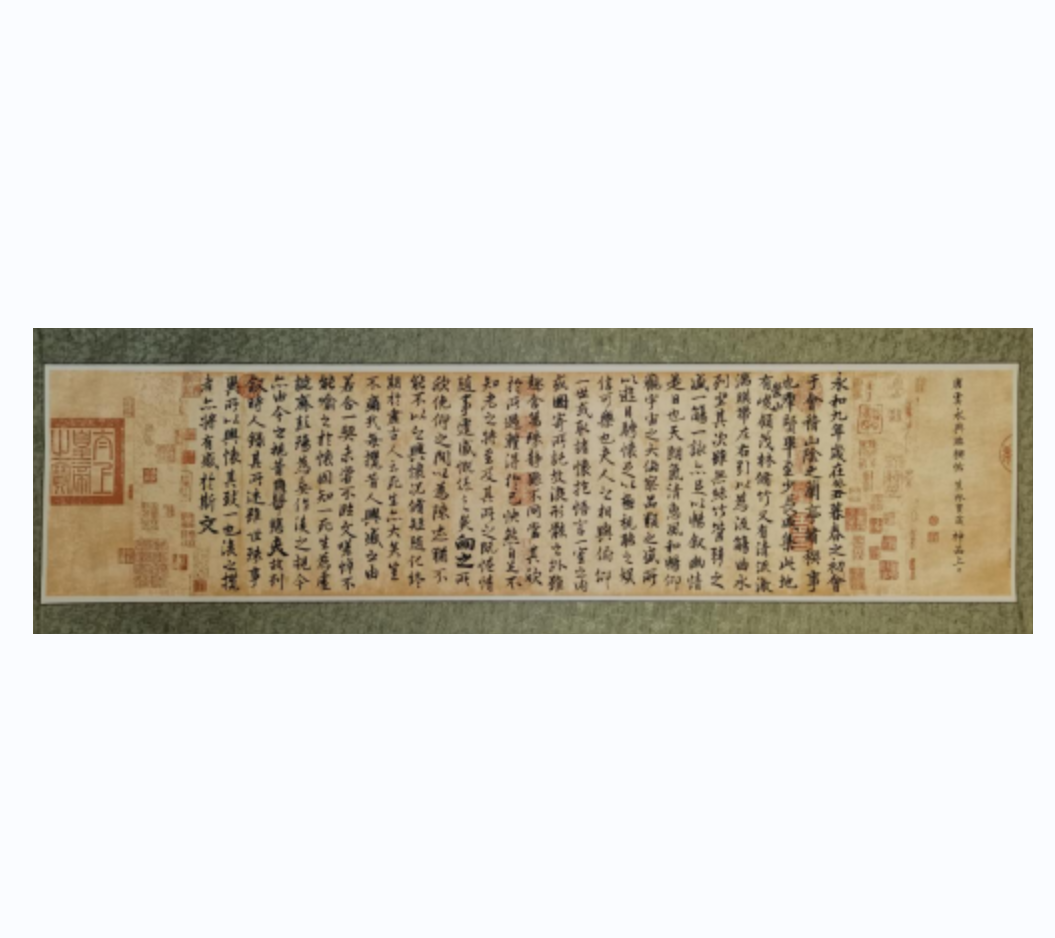 唐虞永興臨禊帖 蕉林寶藏 神品上上
永和九年歲在癸丑暮春之初會
于會稽山陰之蘭亭脩稧事
也群賢畢至少長咸集此地
有崇山峻領茂林脩竹又有清流激
湍暎帶左右引以為流觴曲水
列坐其次雖無絲竹管弦之
盛一觴一詠亦足以暢敘幽情
是日也天朗氣清惠風和暢仰
觀宇宙之大俯察品類之盛所
以遊目騁懷足以極視聽之娛
信可樂也夫人之相與俯仰
一世或取諸懷抱悟言一室之內
或因寄所託放浪形骸之外雖
趣舍萬殊靜躁不同當其欣
於所遇蹔得於己怏然自足不
知老之將至及其所之既惓情
隨事遷感慨係之矣向之所
欣俛仰之間以為陳跡猶不
能不以之興懷況脩短隨化終
期於盡古人云死生亦大矣豈
不痛哉每攬昔人興感之由
若合一契未嘗不臨文嗟悼不
能喻之於懷固知一死生為虛
誕齊彭殤為妄作後之視今
亦由今之視昔悲夫故列
敘時人錄其所述雖世殊事
異所以興懷其致一也後之攬
者亦將有感於斯文
太上
皇帝
之寶